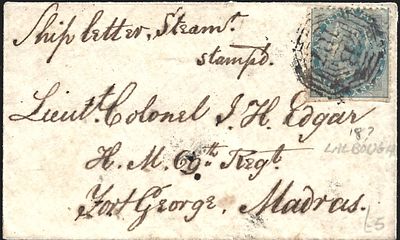 Ship letter, Steamr.
stampd.
Lieut. Colonel J. H. Edgar
H. M. 69th Regt.
Fort George, Madras.
18?
LALBOUGH
L5